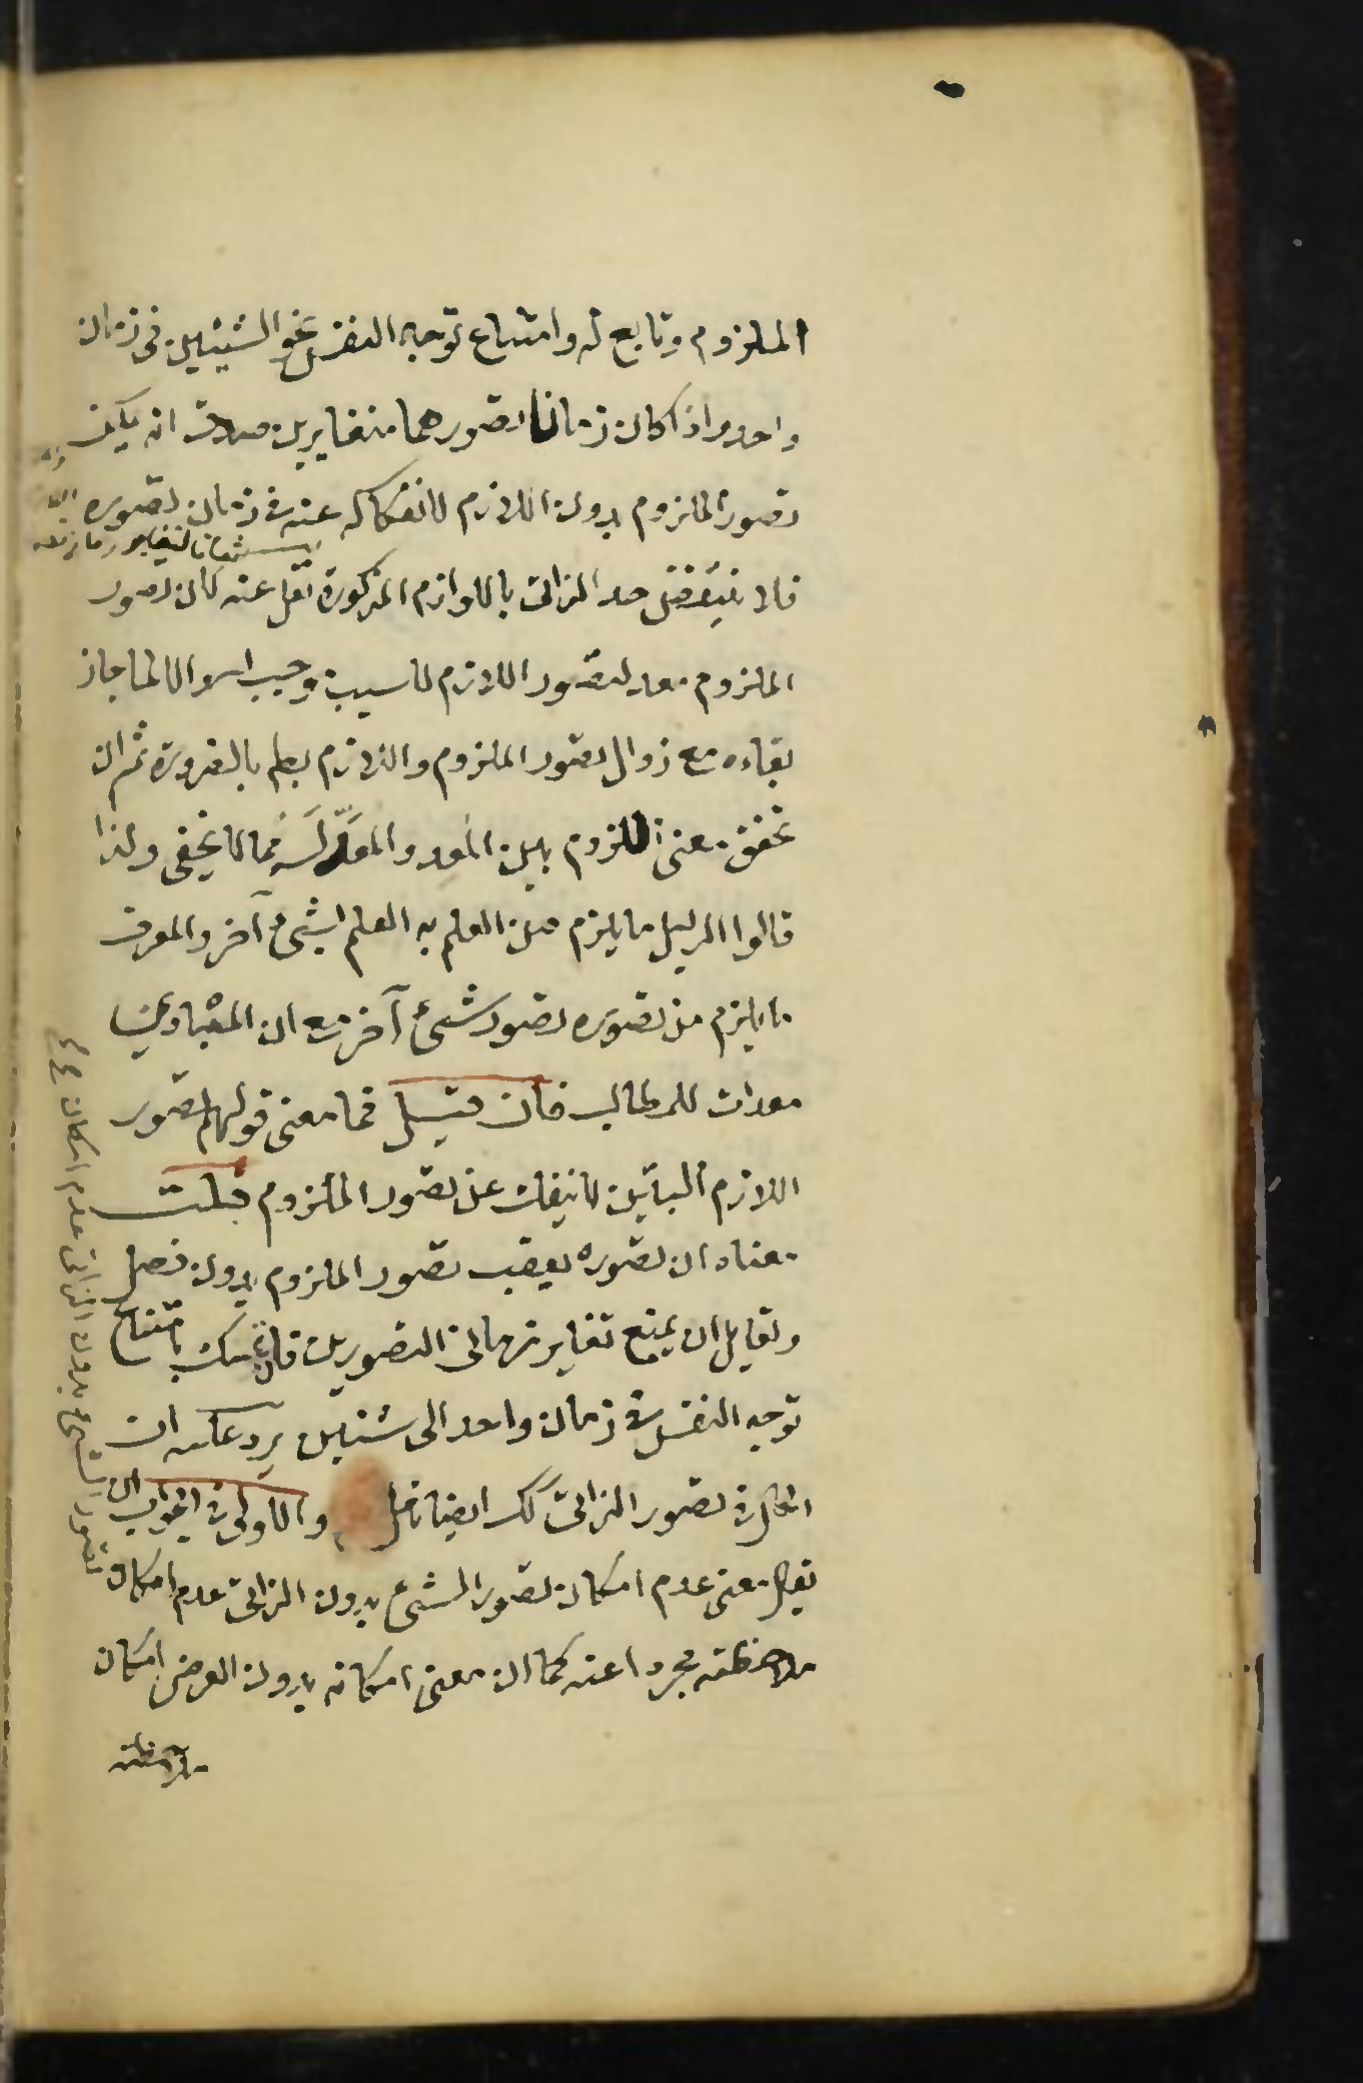 الملزوم وتابع له وامتناع توجه النفس نحو الشيئين في زمان
واحد واذا كان زمانا تصورهما متغايرين صدق انه يمكن
تصور الملزوم بدون اللازم لانفكاكه عنه في زمان تصوره
فلا ينتقض حد الذاتى باللوازم المذكورة نقل عنه كان تصور
الملزوم معد لتصور اللازم لا سبب وجب والا لما جاز
بقاءه مع زوال تصور الملزوم واللازم بطم بالضرورة ثم ان
تحقق معنى اللزوم بين المعد والمعدّ لَه مما لا يخفى ولذا
قالوا الدليل ما يلزم من العلم به العلم بشئ آخر والمعرف
ما يلزم من تصوره تصور شئ آخر مع ان المبادى
معدات للمطالب فان قيل فما معنى قولهم تصور
اللازم البين لا ينفك عن تصور الملزوم قلت
معناه ان تصوره يعقب تصور الملزوم بدون فصل
ولقايل ان يمنع تغاير زمانى التصورين فان تمسك بامتناع
توجه النفس في زمان واحد الى شئيين يرد عليه ان
الحال في تصور الذاتى كك ايضا تأمل والاولى في الجواب ان
يقال معنى عدم امكان تصور الشئ بدون الذاتى عدم امكان
ملاحظته مجردا عنه كما ان معنى امكانه بدون العرض امكان
ملاحظته
تصور الشئ بدون الذاتى عدم امكان